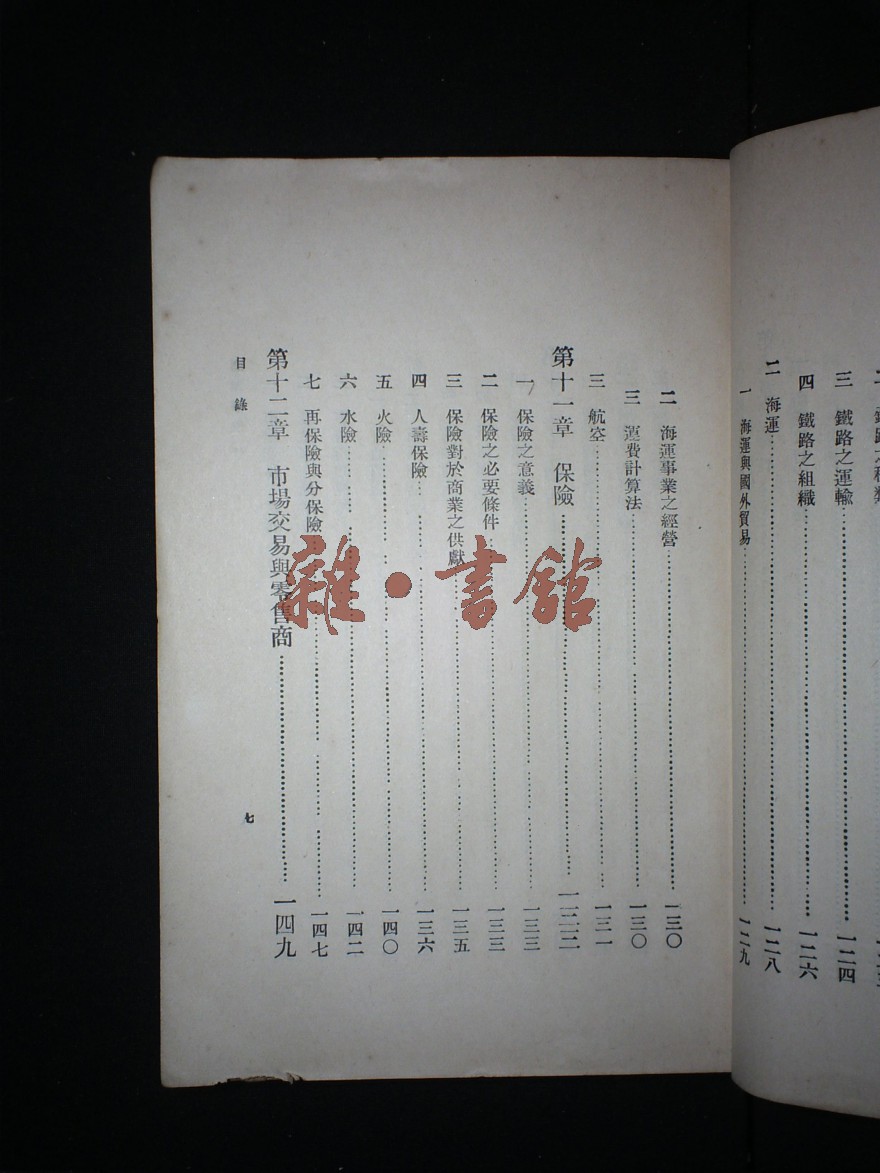 三 鐵路之運輸……一二四
四 鐵路之組織……一二六
二 海運……一二八
一 海運與國外貿易……一二九
二 海運事業之經營……一三〇
三 運費計算法……一三〇
三 航空……一三一
第十一章 保險……一三三
一 保險之意義……一三三
二 保險之必要條件……一三三
三 保險對於商業之供獻……一三五
四 人壽保險……一三六
五 火險……一四〇
六 水險……一四二
七 再保險與分保險……一四七
第十二章 市場交易與零售商……一四九
目錄
七
雜·書館